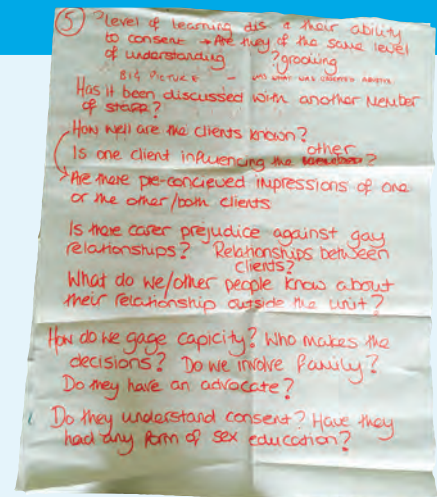 5 ? level of learning dis & their ability
to consent → Are they of the same level
of understanding ? grooming
BIG PICTURE – WAS WHAT WAS
Has it been discussed with another member
of staff?
How well are the clients known?
Is one client influencing the other?
Are there pre-concieved impressions of one
or the other/both clients
Is there carer prejudice against gay
relationships? Relationships between
clients?
What do we/other people know about
their relationship outside the unit?
How do we gage capicity? Who makes the
decisions? Do we involve family?
Do they have an advocate?
Do they understand consent? Have they
had any form of sex education?